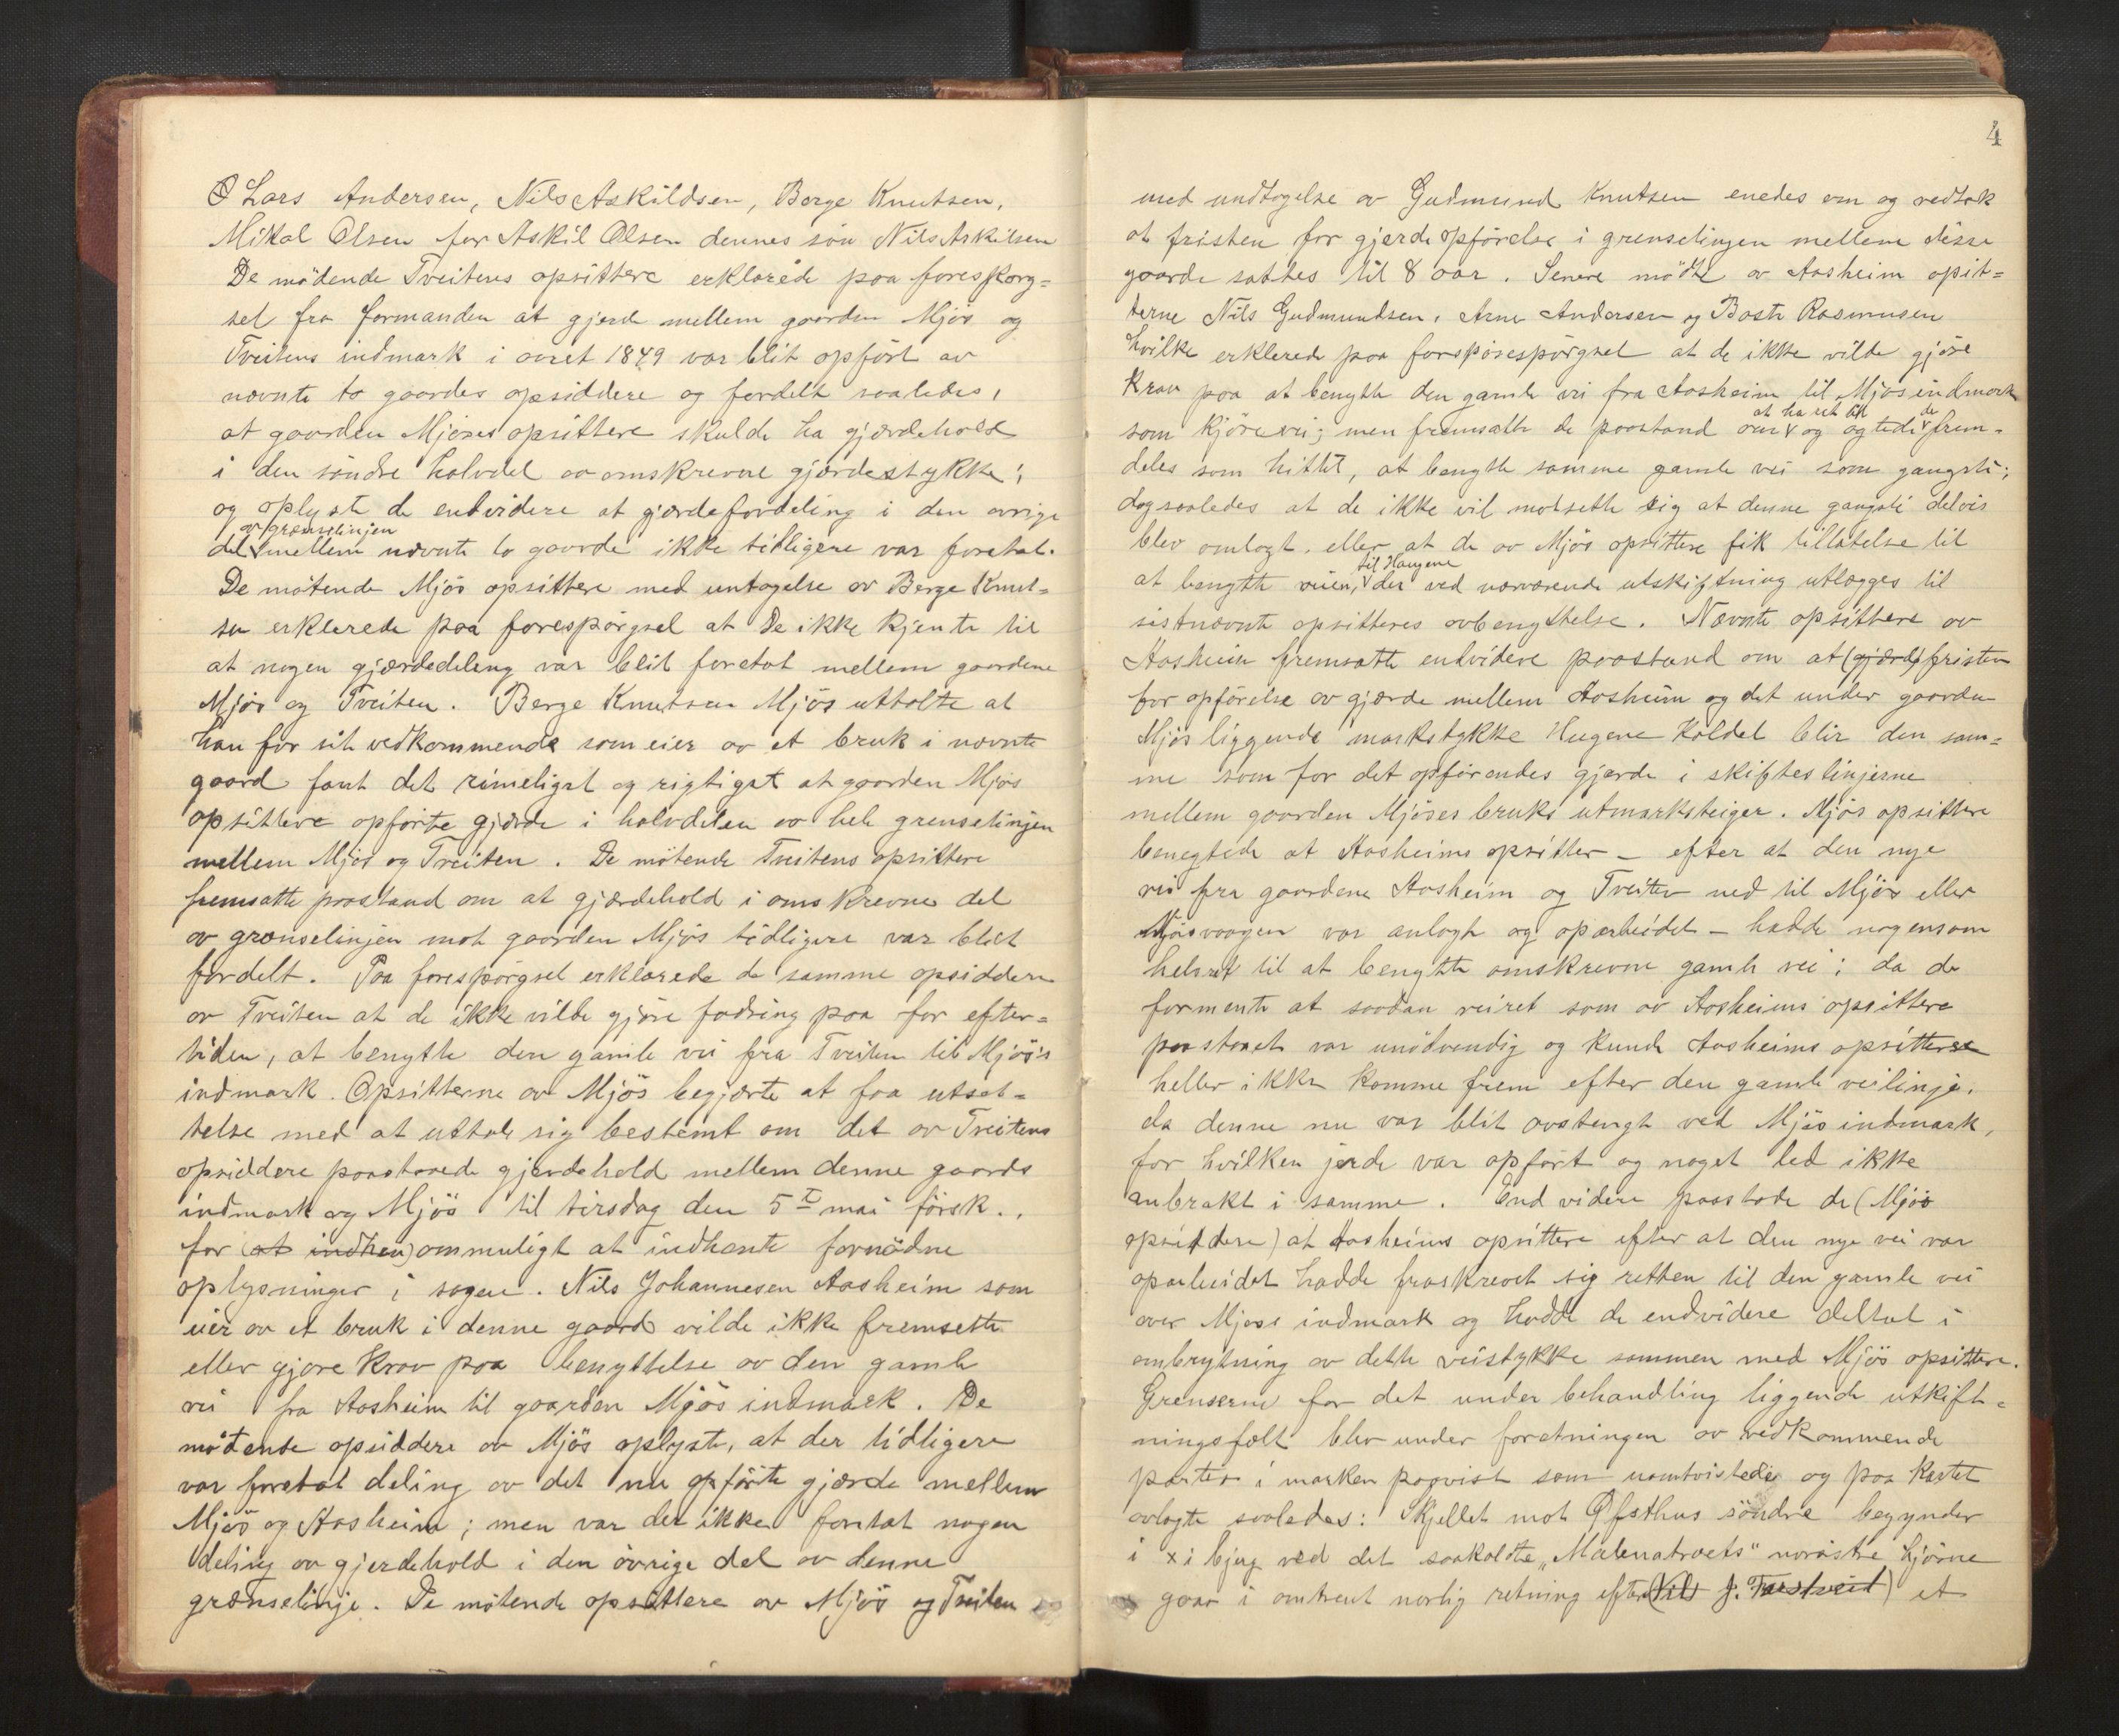 Lars Andersen, Nils Askildsen, Berge Knutsen,
Mikal Olsen for Askil Olsen dennes sön Nils Askilsen
De mödende Tveitens opsittere erklarede paa foresporg=
sel fra formanden at gjerde mellem gaarden Mjös og
Tveitens indmark i aaret 1849 var blit opfört av
nævnte to gaardes opsiddere og fordelt saaledes,
at gaarden Mjöses opsittere skulde ha gjærdehold
i den söndre halvdel av omskrevne gjærdestykke;
og oplyste de endvidere at gjærdefordeling i den övrige
av grænselinjen
del mellem nævnte to gaarde ikke tidligere var foretat.
De mötende Mjös opsittere med untagelse av Berge Knut=
sen erklerede paa forespörgsel at De ikke kjente til
at nogen gjærdedeling var blit foretat mellem gaardene
Mjös og Tveiten. Berge Knutsen Mjös uttalte at
han for sit vedkommende som eier av et bruk i nævnte
gaard fant det rimeligst og rigtigst at gaarden Mjös
opsittere opförte gjærde i halvdelen av hele grenselinjen
mellem Mjös og Tveiten. De mötende Tveitens opsittere
fremsatte paastand om at gjærdehold i omskrevne del
av grænselinjen mot gaarden Mjös tidligere var blit
fordelt. Paa forespörgsel erklærede de samme opsiddere
av Tveiten at de ikke vilde gjöre fodring paa for efter=
tiden, at benytte den gamle vei fra Tveiten til Mjös's
indmark. Opsitterne av Mjös begjærte at faa utset=
telse med at uttale sig bestemt om det av Tveitens
opsiddere paastaaede gjerdehold mellem denne gaards
indmark og Mjös til tirsdag den 5 mai försk.,
for (at indhen) ommuligt at indhente fornödne
oplysninger i sagen. Nils Johannesen Aasheim som
eier av et bruk i denne gaard vilde ikke fremsette
eller gjöre krav paa benyttelse av den gamle
vei fra Aasheim til gaarden Mjös indmark. De
mötende opsiddere av Mjös oplyste, at der tidligere
var foretat deling av det nu opförte gjærde mellem
Mjös og Aasheim; men var der ikke foretat nogen
deling av gjerdehold i den övrige del av denne
grænselinje. De mötende opsittere av Mjös og Tveiten
4
med undtagelse av Gudmund Knutsen enedes om og vedtok
at fristen for gjerdeopförelse i grenselinjen mellem disse
gaarde sattes til 8 aar. Senere mödte av Aasheim opsit=
terne Nils Gudmundsen, Arne Andersen og Baste Rasmusen
hvilke erklerede paa forspösespörgsel at de ikke vilde gjöre
krav paa at benytte den gamle vei fra Aasheim til Mjös indmark
at ha ret til de
som kjörevei; men fremsatte de paastand om og agtede frem=
deles som hittil, at benytte samme gamle vei som gangsti;
dog saaledes at de ikke vil motsette sig at denne gangsti delvis
blev omlagt, eller at de av Mjös opsittere fik tillatelse til
til Haugene
at benytte veien, der ved nærværende utskiftning utlægges til
sistnævnte opsitteres avbenyttelse. Nævnte opsittere av
Aasheim fremsatte endvidere paastand om at (gjærde) fristen
for opförelse av gjærde mellem Aasheim og det under gaarden
Mjös liggende markstykke Haugene kaldet blir den sam=
me som for det opförendes gjerde i skifteslinjerne
mellem gaarden Mjöses bruks utmarksteiger. Mjös opsittere
benegtede at Aasheims opsitter – efter at den nye
vei fra gaardene Aasheim og Tveiten ned til Mjös eller
Mjösvaagen var anlagt og oparbeidet – hadde nogensom
helst ret til at benytte omskrevne gamle vei; da de
formente at saadan veiret som av Aasheims opsittere
paastaaet var unödvendig og kunde Aasheims opsittere
heller ikke komme frem efter den gamle veilinje,
da denne nu var blit avstengt ved Mjös indmark,
for hvilken jerde var opfört og noget led ikke
anbrakt i samme. Endvidere paastode de (Mjös
opsiddere) at Aasheims opsittere efter at den nye vei var
oparbeidet hadde fraskrevet sig retten til den gamle vei
over Mjöss indmark og hadde de endvidere deltat i
ombrytning av dette veistykke sammen med Mjös opsittere.
Grenserne for det under behandling liggende utskift=
ningsfelt blev under foretningen av vedkommende
parter i marken paavist som uomtvistede og paa kartet
avlagte saaledes: Skjellet mot Øfsthus söndre begynder
i x i bjerg ved det saakaldte „Malenatræets" nordöstre hjörne
gaar i omtrent nordlig retning efter (Nils J. Tarstveit) et